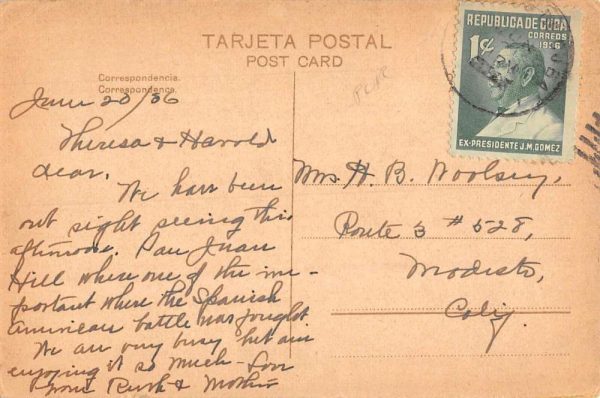 TARJETA POSTAL
POST CARD
Correspondencia.
Correspondence.
REPUBLICA DE CUBA
1¢
CORREOS
1936
EX-PRESIDENTE J.M. GOMEZ
June 20/36
Theresa & Harold
dear,
We have been
out sight seeing this
afternoon. San Juan
Hill where one of the im-
portant where the Spanish
American battle was fought.
We are very busy but am
enjoying it so much - Love
from & Mother
Mrs H. B. Woolsey,
Route 3 # 528,
Modesto,
Calif